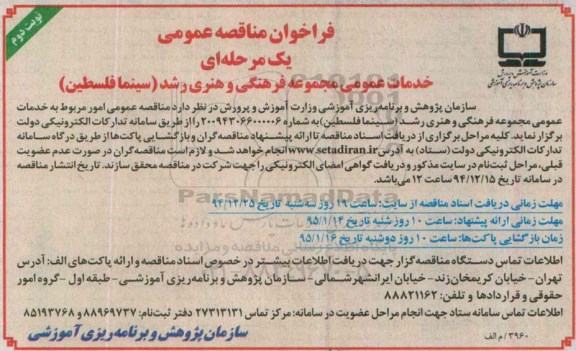 نوبت دوم
فراخوان مناقصه عمومی
یک مرحله‌ای
خدمات عمومی مجموعه فرهنگی و هنری رشد (سینما فلسطین)
وزارت آموزش و پرورش
سازمان پژوهش و برنامه‌ریزی آموزشی
سازمان پژوهش و برنامه‌ریزی آموزشی وزارت آموزش و پرورش در نظر دارد مناقصه عمومی امور مربوط به خدمات
عمومی مجموعه فرهنگی و هنری رشد (سینما فلسطین) به شماره ۲۰۰۹۴۳۰۶۶۰۰۰۰۰۶ را از طریق سامانه تدارکات الکترونیکی دولت
برگزار نماید. کلیه مراحل برگزاری از دریافت اسناد مناقصه تا ارائه پیشنهاد مناقصه گران و بازگشایی پاکت‌ها از طریق درگاه سامانه
تدارکات الکترونیکی دولت (ستاد) به آدرس www.setadiran.ir انجام خواهد شد و لازم است مناقصه گران در صورت عدم عضویت
قبلی، مراحل ثبت‌نام در سایت مذکور و دریافت گواهی امضای الکترونیکی را جهت شرکت در مناقصه محقق سازند. تاریخ انتشار مناقصه
در سامانه تاریخ ۹۴/۱۲/۱۵ ساعت ۱۳ می‌باشد.
مهلت زمانی دریافت اسناد مناقصه از سایت: ساعت ۱۹ روز سه‌شنبه تاریخ ۹۴/۱۲/۲۵
مهلت زمانی ارائه پیشنهاد: ساعت ۱۰ روز شنبه تاریخ ۹۵/۱/۱۴
زمان بازگشایی پاکت‌ها: ساعت ۱۰ روز دوشنبه تاریخ ۹۵/۱/۱۶
اطلاعات تماس دستگاه مناقصه گزار جهت دریافت اطلاعات بیشتر در خصوص اسناد مناقصه و ارائه پاکت‌های الف: آدرس
تهران- خیابان کریمخان‌زند- خیابان ایرانشهرشمالی- سازمان پژوهش و برنامه‌ریزی آموزشی- طبقه اول- گروه امور
حقوقی و قراردادها و تلفن: ۸۸۸۳۱۱۶۲
اطلاعات تماس سامانه ستاد جهت انجام مراحل عضویت در سامانه: مرکز تماس ۲۷۳۱۳۱۳۱ دفتر ثبت‌نام: ۸۸۹۶۹۷۳۷ و ۸۵۱۹۳۷۶۸
سازمان پژوهش و برنامه‌ریزی آموزشی
۳۹۶۰ / م الف
ParsNamadData